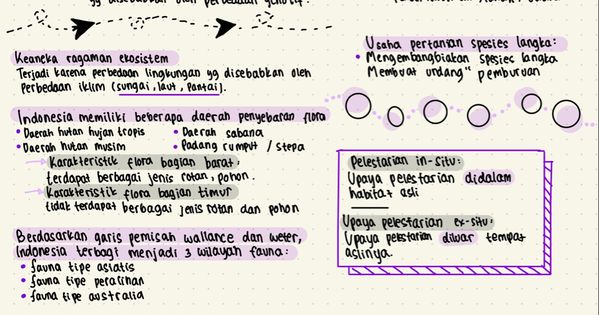 yg disebabkan oleh perbedaan genotif.
Keaneka ragaman ekosistem
Terjadi karena perbedaan lingkungan yg disebabkan oleh
Perbedaan iklim (sungai, laut, Pantai).
Indonesia memiliki beberapa daerah penyebaran flora
• Daerah hutan hujan tropis
• Daerah sabana
• Daerah hutan musim
• Padang rumput / stepa
Karakteristik flora bagian barat:
terdapat berbagai jenis rotan, pohon.
Karakteristik flora bagian timur
tidak terdapat berbagai jenis rotan dan pohon
Berdasarkan garis pemisah wallance dan weter,
Indonesia terbagi menjadi 3 wilayah fauna:
• fauna tipe asiatis
• fauna tipe peralihan
• fauna tipe australia
Usaha pertanian spesies langka:
• Mengembangbiakan spesies langka
Membuat undang" pemburuan
Pelestarian in-situ:
Upaya pelestarian didalam
habitat asli
Upaya pelestarian ex-situ:
Upaya pelestarian diluar tempat
aslinya.